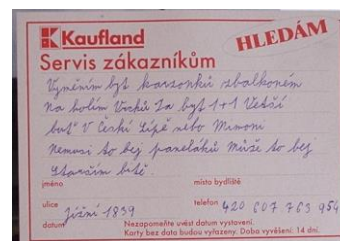 Kaufland
HLEDÁM
Servis zákazníkům
Vyměním byt karsonků zbalkoném
Na holím Vrchů Za byt 1+1 Vetší
buť V Českí Lípě nebo Mimoni
Nemusi to bej paneláků Může to bej
Starším bitě
jméno
místo bydliště
ulice
Jížní 1839
telefon 420 607 763 954
datum
Nezapomeňte uvést datum vystavení.
Karty bez data budou vyřazeny. Doba vyvěšení: 14 dní.